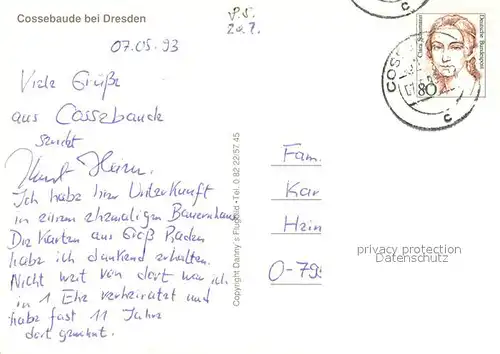 Cossebaude bei Dresden
P.S.
20.7.
07.05.93
Viele Grüße
aus Cossebaude
sendet
Ich habe hier Unterkunft
in einem ehemaligen Bauernhaus
Die Karten aus Groß Raden
habe ich dankend erhalten.
Nicht weit von dort war ich
in 1 Ehe verheiratet und
habe fast 11 Jahre
dort gewohnt.
Copyright Danny's Flugbild • Tel. 0 82 22/57 45
Clara Schumann
Deutsche Bundespost
80
COS
c
c
Fam.
Kar
Hein
O-795
privacy protection
Datenschutz